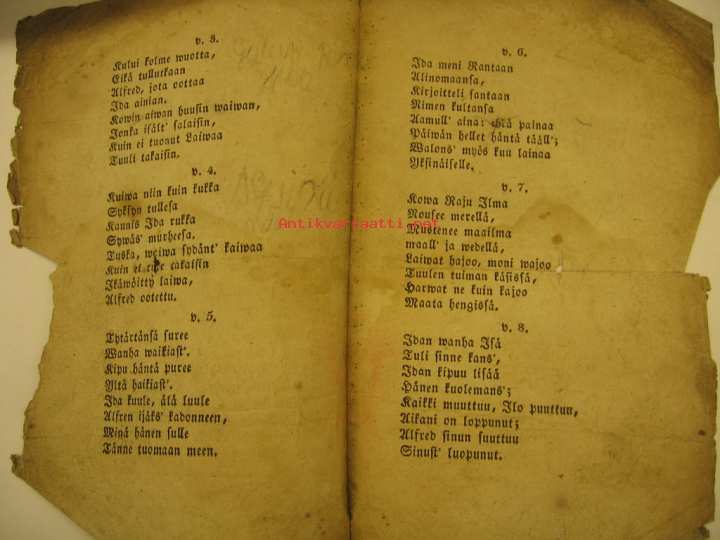 v. 3.
Kului kolme wuotta,
Eikä tullutkaan
Alfred, jota oottaa
Ida ainian.
Kowin aiwan huusin waiwan,
Jonka isält' salaisin,
Kuin ei tuonut Laiwaa
Tuuli takaisin.
v. 4.
Kuiwa niin kuin kukka
Syksyn tullesa
Kannis Ida rukka
Sywäs' murheesa.
Tuska, waiwa sydänt' kaiwaa
Kuin ei takaisin
Ikäwöitty laiwa,
Alfred ootettu.
v. 5.
Tytärtänsä suree
Wanha waikiast'.
Kipu häntä puree
Yltä haikiast'.
Ida kuule, älä luule
Alfren ijäks' kadonneen,
Minä hänen sulle
Tänne tuomaan meen.
v. 6.
Ida meni Rantaan
Alinomaansa,
Kirjoitteli santaan
Nimen kultansa
Aamull' aina: ehtä painaa
Päiwän hellet häntä tääll';
Walons' myös kuu lainaa
Yksinäiselle.
v. 7.
Kowa Raju Ilma
Nousee merellä,
Mustenee maailma
maall' ja wedellä,
Laiwat hajoo, moni wajoo
Tuulen tuiman käsissä,
Harwat ne kuin kajoo
Maata hengissä.
v. 8.
Idan wanha Isä
Tuli sinne kans',
Idan kipuu lisää
Hänen kuolemans';
Kaikki muuttuu, Ilo puuttuu,
Aikani on loppunut;
Alfred sinun suuttuu
Sinust' luopunut.
Antikvariaatti.net